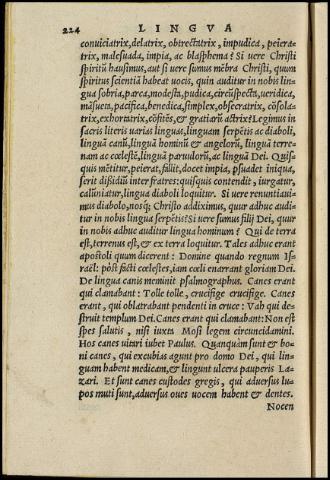 224 LINGVA
conuiciatrix, delatrix, obtrectatrix, impudica, peiera-
trix, malesuada, impia, ac blasphema? Si uere Christi
spiritū hausimus, aut si uere sumus mēbra Christi, quum
spiritus scientiā habeat uocis, quin auditur in nobis lin-
gua sobria, parca, modesta, pudica, circūspecta, ueridica,
māsueta, pacifica, benedica, simplex, obsecratrix, cōsola-
trix, exhortatrix, cōfitēs, & gratiarū actrix? Legimus in
sacris literis uarias linguas, linguam serpētis ac diaboli,
linguā canū, linguā hominū & angelorū, linguā terre-
nam ac cœlestē, linguā paruulorū, ac linguā Dei. Quis-
quis mētitur, peierat, fallit, docet impia, psuadet iniqua,
serit disidiū inter fratres: quisquis contendit, iurgatur,
calūniatur, lingua diaboli loquitur. Si uere renuntiaui-
mus diabolo, nosq; Christo addiximus, quur adhuc audi-
tur in nobis lingua serpētis? Si uere sumus filij Dei, quur
in nobis adhuc auditur lingua hominum? Qui de terra
est, terrenus est, & ex terra loquitur. Tales adhuc erant
apostoli quum dicerent: Domine quando regnum Is-
raēl: pōst facti cœlestes, iam cœli enarrant gloriam Dei.
De lingua canis meminit psalmographus. Canes erant
qui clamabant: Tolle tolle, crucifige crucifige. Canes
erant, qui oblatrabant pendenti in cruce: Vah qui de-
struit templum Dei. Canes erant qui clamabant: Non est
spes salutis, nisi iuxta Mosi legem circuncidamini.
Hos canes uitari iubet Paulus. Quanquàm sunt & bo-
ni canes, qui excubias agunt pro domo Dei, qui lin-
guam habent medicam, & lingunt ulcera pauperis La-
zari. Et sunt canes custodes gregis, qui aduersus lu-
pos muti sunt, aduersus oues uocem habent & dentes.
Nocen